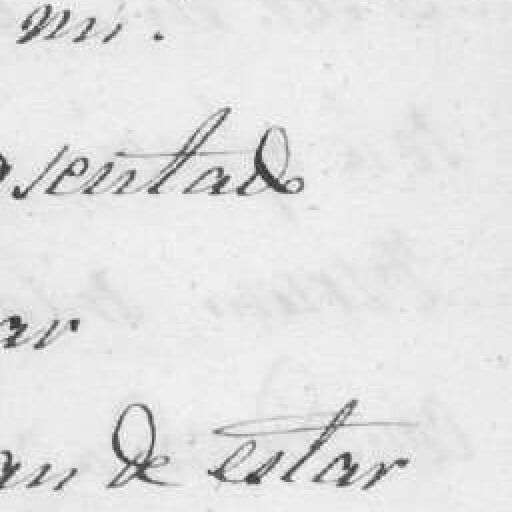 mi.
sentado
ar
an de estar